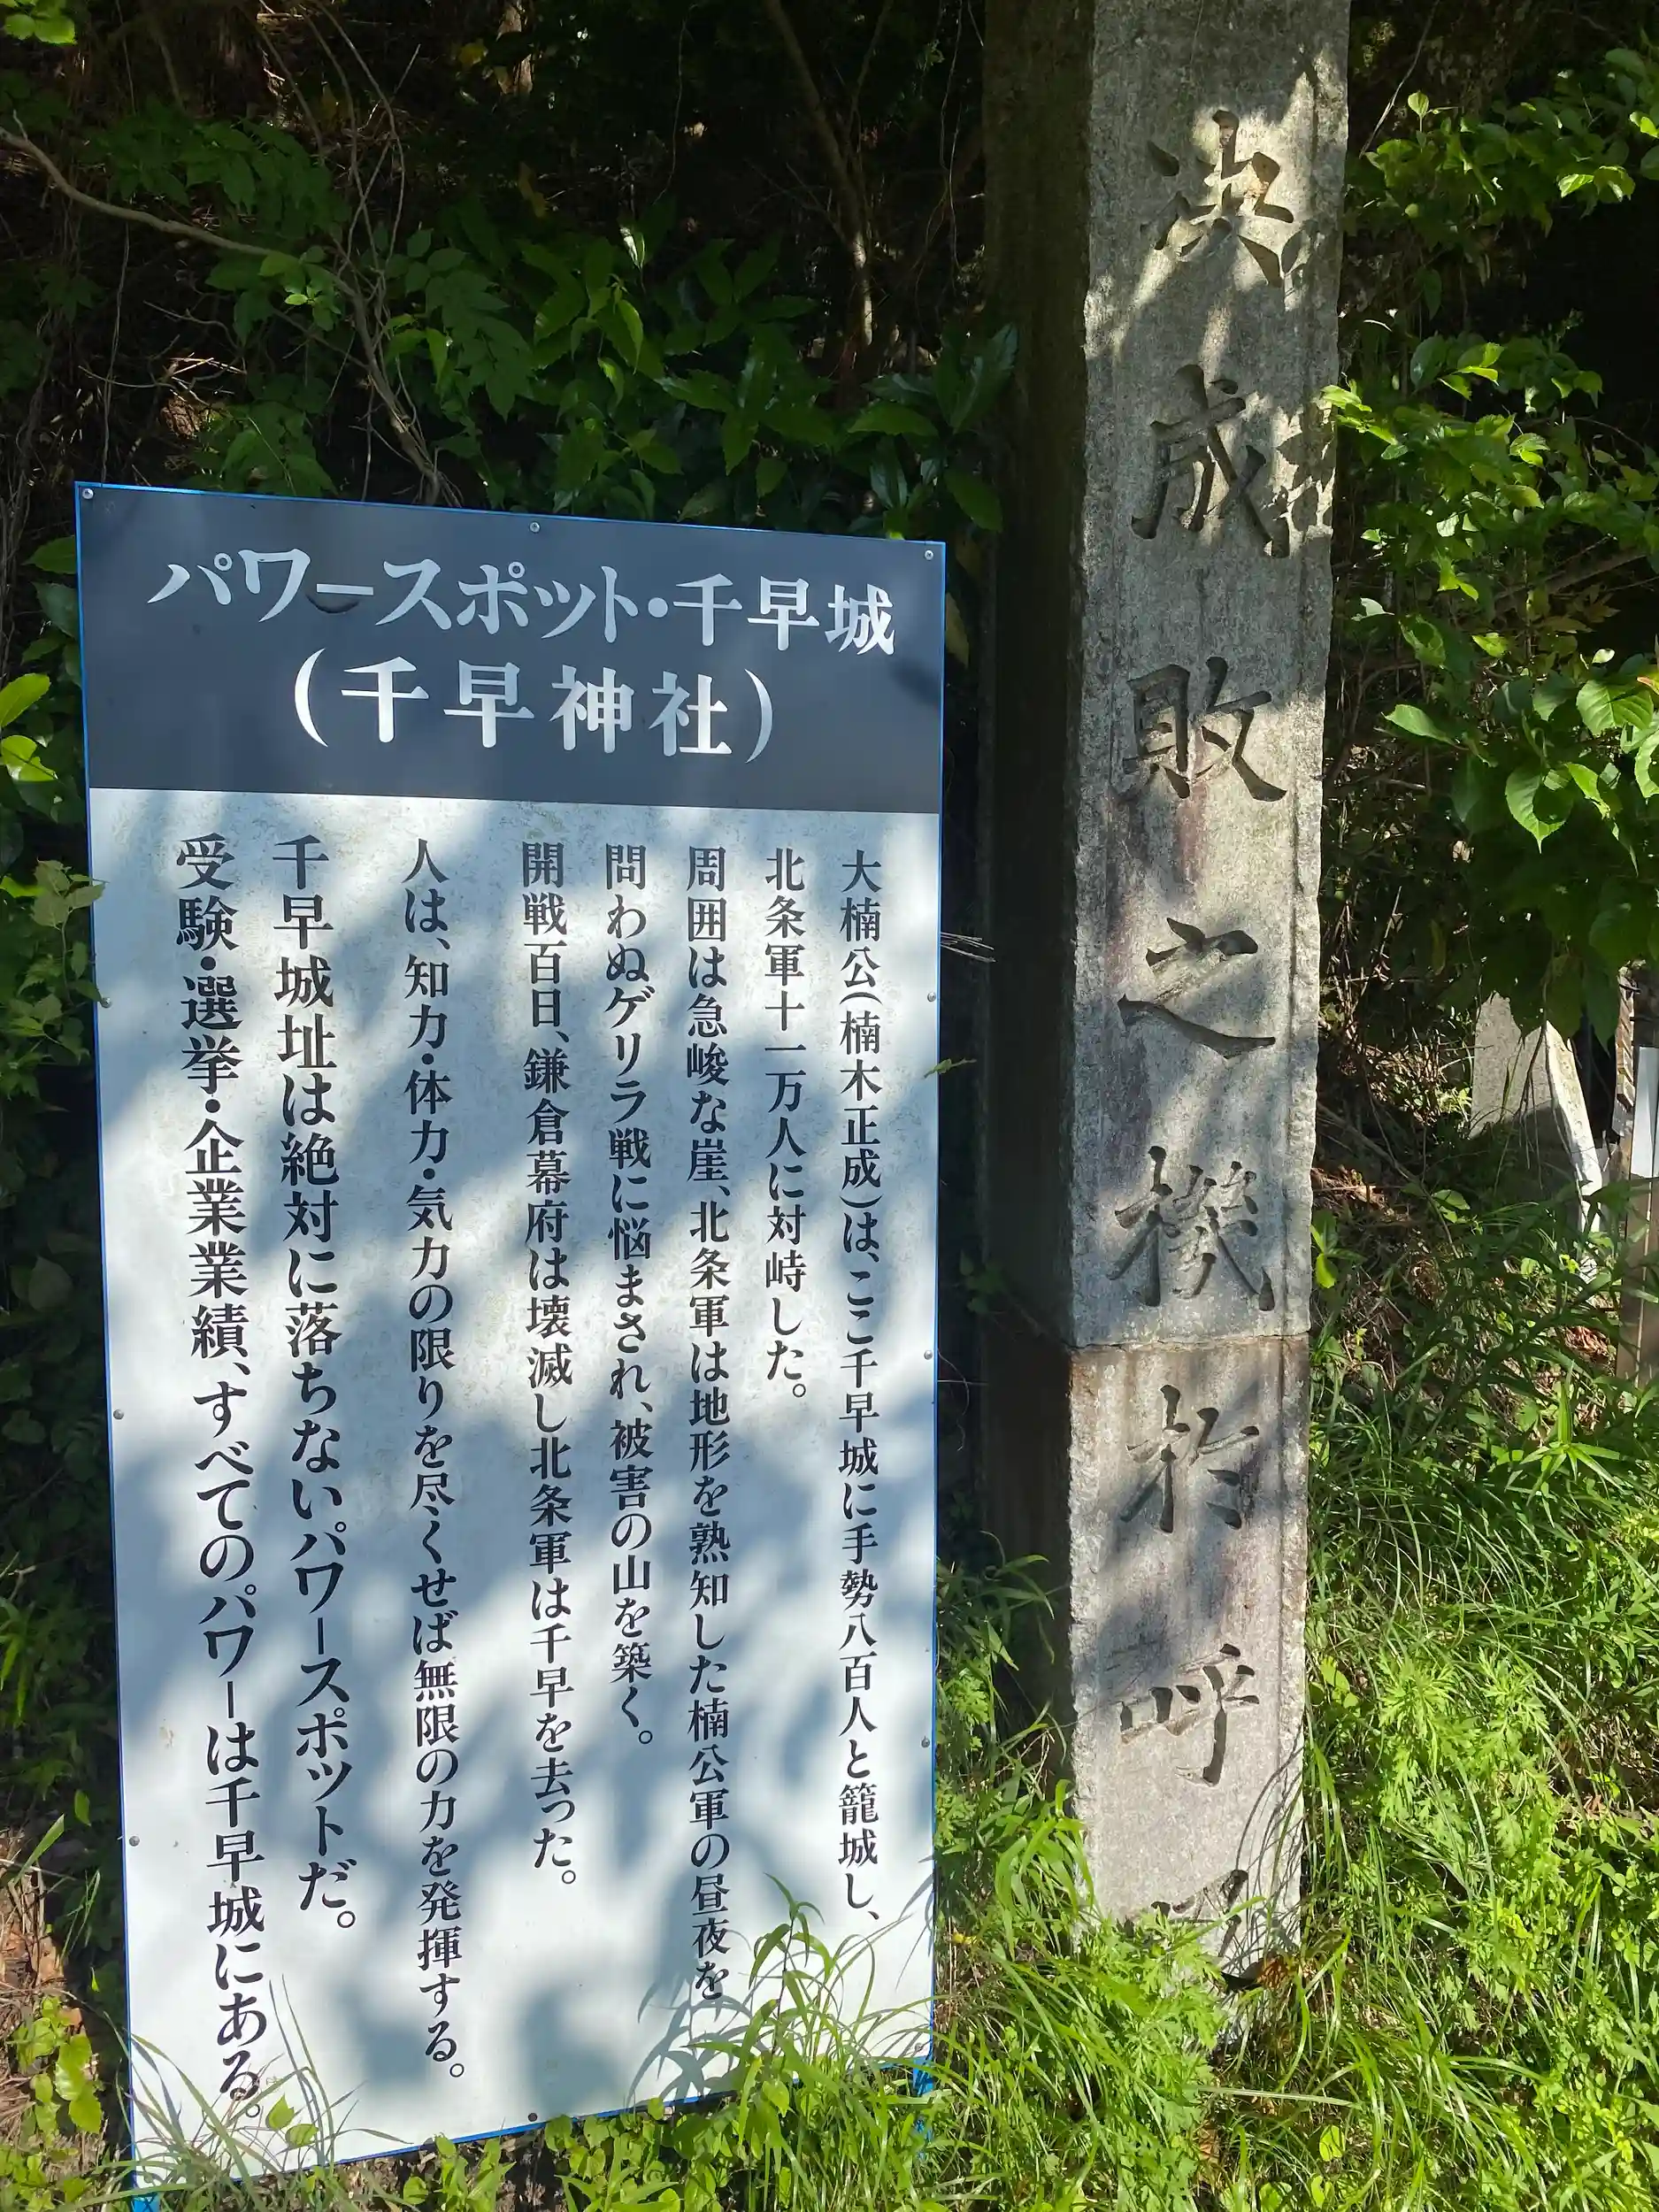 パワースポット・千早城
(千早神社)
大楠公(楠木正成)は、ここ千早城に手勢八百人と籠城し、
北条軍十一万人に対峙した。
周囲は急峻な崖、北条軍は地形を熟知した楠公軍の昼夜を
問わぬゲリラ戦に悩まされ、被害の山を築く。
開戦百日、鎌倉幕府は壊滅し北条軍は千早を去った。
人は、知力・体力・気力の限りを尽くせば無限の力を発揮する。
千早城址は絶対に落ちないパワースポットだ。
受験・選挙・企業業績、すべてのパワーは千早城にある。
決成敗之機於呼